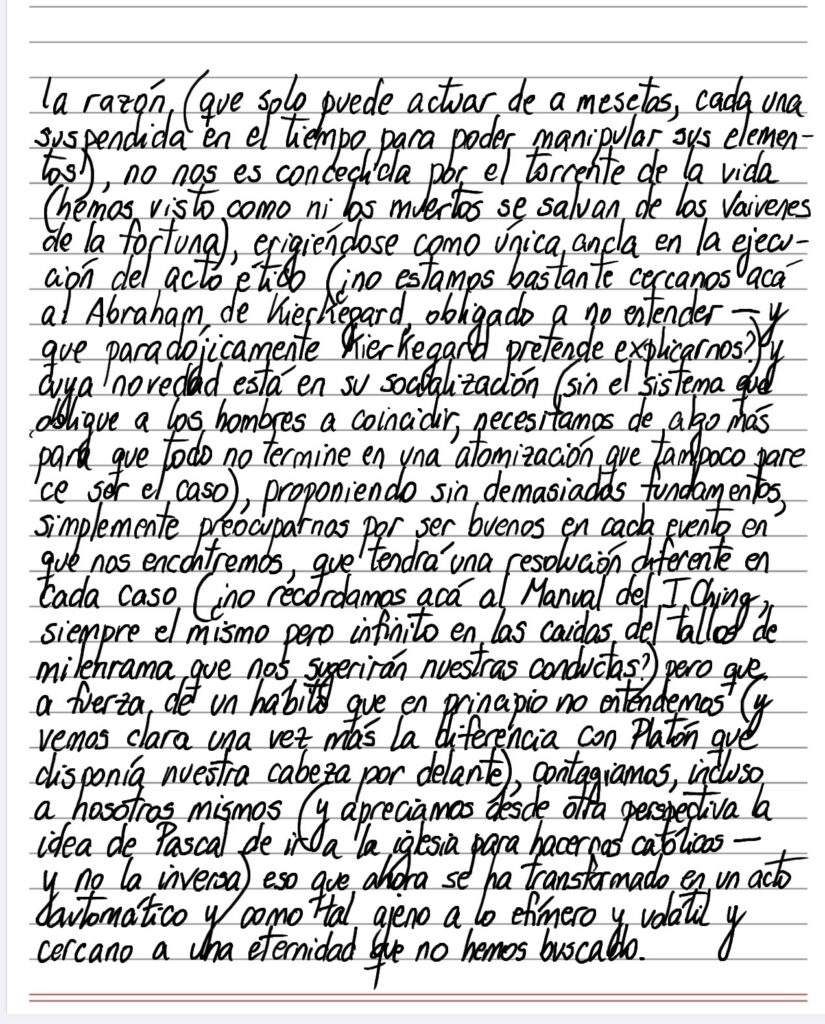 la razón, (que solo puede actuar de a mesetas, cada una
suspendida en el tiempo para poder manipular sus elemen-
tos), no nos es concedida por el torrente de la vida
(hemos visto como ni los muertos se salvan de los vaivenes
de la fortuna), erigiéndose como única ancla en la ejecu-
ción del acto ético (¿no estamos bastante cercanos acá
al Abraham de Kierkegard, obligado a no entender — y
que paradójicamente Kierkegard pretende explicarnos?) y
cuya novedad está en su socialización (sin el sistema que
obligue a los hombres a coincidir, necesitamos de algo más
para que todo no termine en una atomización que tampoco pare
ce ser el caso), proponiendo sin demasiados fundamentos,
simplemente preocuparnos por ser buenos en cada evento en
que nos encontremos, que tendrá una resolución diferente en
cada caso (¿no recordamos acá al Manual del I Ching,
siempre el mismo pero infinito en las caídas del tallos de
milenrama que nos sugerirán nuestras conductas?) pero que
a fuerza de un hábito que en principio no entendemos (y
vemos clara una vez más la diferencia con Platón que
disponía nuestra cabeza por delante), contagiamos, incluso
a nosotros mismos (y apreciamos desde otra perspectiva la
idea de Pascal de ir a la iglesia para hacernos católicos —
y no la inversa) eso que ahora se ha transformado en un acto
automático y como tal ajeno a lo efímero y volátil y
cercano a una eternidad que no hemos buscado.